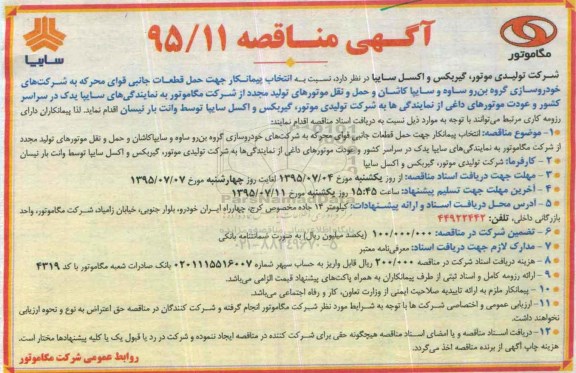 آگهی مناقصه ۹۵/۱۱
مگاموتور
سایپا
شرکت تولیدی موتور، گیربکس و اکسل سایپا در نظر دارد، نسبت به انتخاب پیمانکار جهت حمل قطعات جانبی قوای محرکه به شرکت‌های
خودروسازی گروه بن‌رو ساوه و سایپا کاشان و حمل و نقل موتورهای تولید مجدد از شرکت مگاموتور به نمایندگی‌های سایپا یدک در سراسر
کشور و عودت موتورهای داغی از نمایندگی ها به شرکت تولیدی موتور، گیربکس و اکسل سایپا توسط وانت بار نیسان اقدام نماید. لذا پیمانکاران دارای
رزومه کاری مرتبط می‌توانند با توجه به موارد ذیل نسبت به دریافت اسناد مناقصه اقدام نمایند:
۱- موضوع مناقصه: انتخاب پیمانکار جهت حمل قطعات جانبی قوای محرکه به شرکت‌های خودروسازی گروه بن‌رو ساوه و سایپاکاشان و حمل و نقل موتورهای تولید مجدد
از شرکت مگاموتور به نمایندگی‌های سایپا یدک در سراسر کشور و عودت موتورهای داغی از نمایندگی‌ها به شرکت تولیدی موتور، گیربکس و اکسل سایپا توسط وانت بار نیسان
۲- کارفرما: شرکت تولیدی موتور، گیربکس و اکسل سایپا
۳- مهلت جهت دریافت اسناد مناقصه: از روز یکشنبه مورخ ۱۳۹۵/۰۷/۰۴ لغایت روز چهارشنبه مورخ ۱۳۹۵/۰۷/۰۷
۴- آخرین مهلت جهت تسلیم پیشنهاد: ساعت ۱۵:۴۵ روز یکشنبه مورخ ۱۳۹۵/۰۷/۱۱
۵- آدرس محل دریافت اسناد و ارائه پیشنهادات: کیلومتر ۱۳ جاده مخصوص کرج، چهارراه ایران خودرو، بلوار جنوبی، خیابان زامیاد، شرکت مگاموتور، واحد
بازرگانی داخلی، تلفن: ۴۴۹۲۲۴۴۲
۶- تضمین شرکت در مناقصه: ۱۰۰/۰۰۰/۰۰۰ (یکصد میلیون ریال) به صورت ضمانتنامه بانکی
۷- مدارک لازم جهت دریافت اسناد: معرفی‌نامه معتبر
۸- هزینه دریافت اسناد شرکت در مناقصه ۲۰۰/۰۰۰ ریال قابل واریز به حساب سپهر شماره ۰۲۰۱۱۱۵۵۱۶۰۰۷ بانک صادرات شعبه مگاموتور با کد ۴۳۱۹
۹- ارائه رزومه کامل و اسناد ثبتی از طرف پیمانکاران به همراه پاکت‌های پیشنهاد قیمت الزامی می‌باشد.
۱۰- پیمانکار ملزم به ارائه تاییدیه صلاحیت ایمنی از وزارت تعاون، کار و رفاه اجتماعی می‌باشد.
۱۱- ارزیابی عمومی و اختصاصی شرکت ها با توجه به شرایط مورد نظر شرکت مگاموتور انجام گرفته و شرکت کنندگان در مناقصه حق اعتراض به نوع و نحوه ارزیابی
نخواهند داشت.
۱۲- دریافت اسناد مناقصه و یا امضای اسناد مناقصه هیچگونه حقی برای شرکت کننده در مناقصه ایجاد ننموده و شرکت در رد یا قبول یک یا کلیه پیشنهادها مختار است.
هزینه چاپ آگهی از برنده مناقصه اخذ می‌گردد.
روابط عمومی شرکت مگاموتور